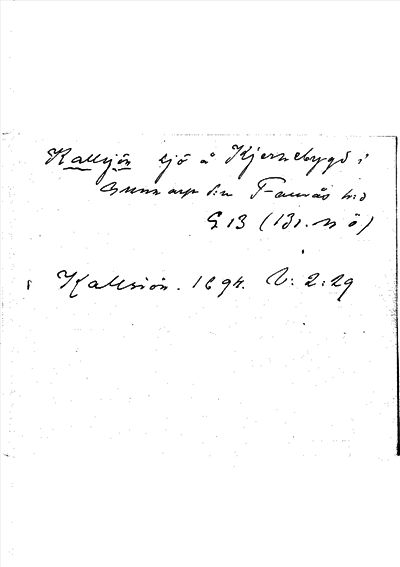 Kallsjön sjö å Kjernebygd i
Gunnarp s:n Faurås h:d
G 13 (131. n ö)
Kallsiön. 1694. V: 2: 29